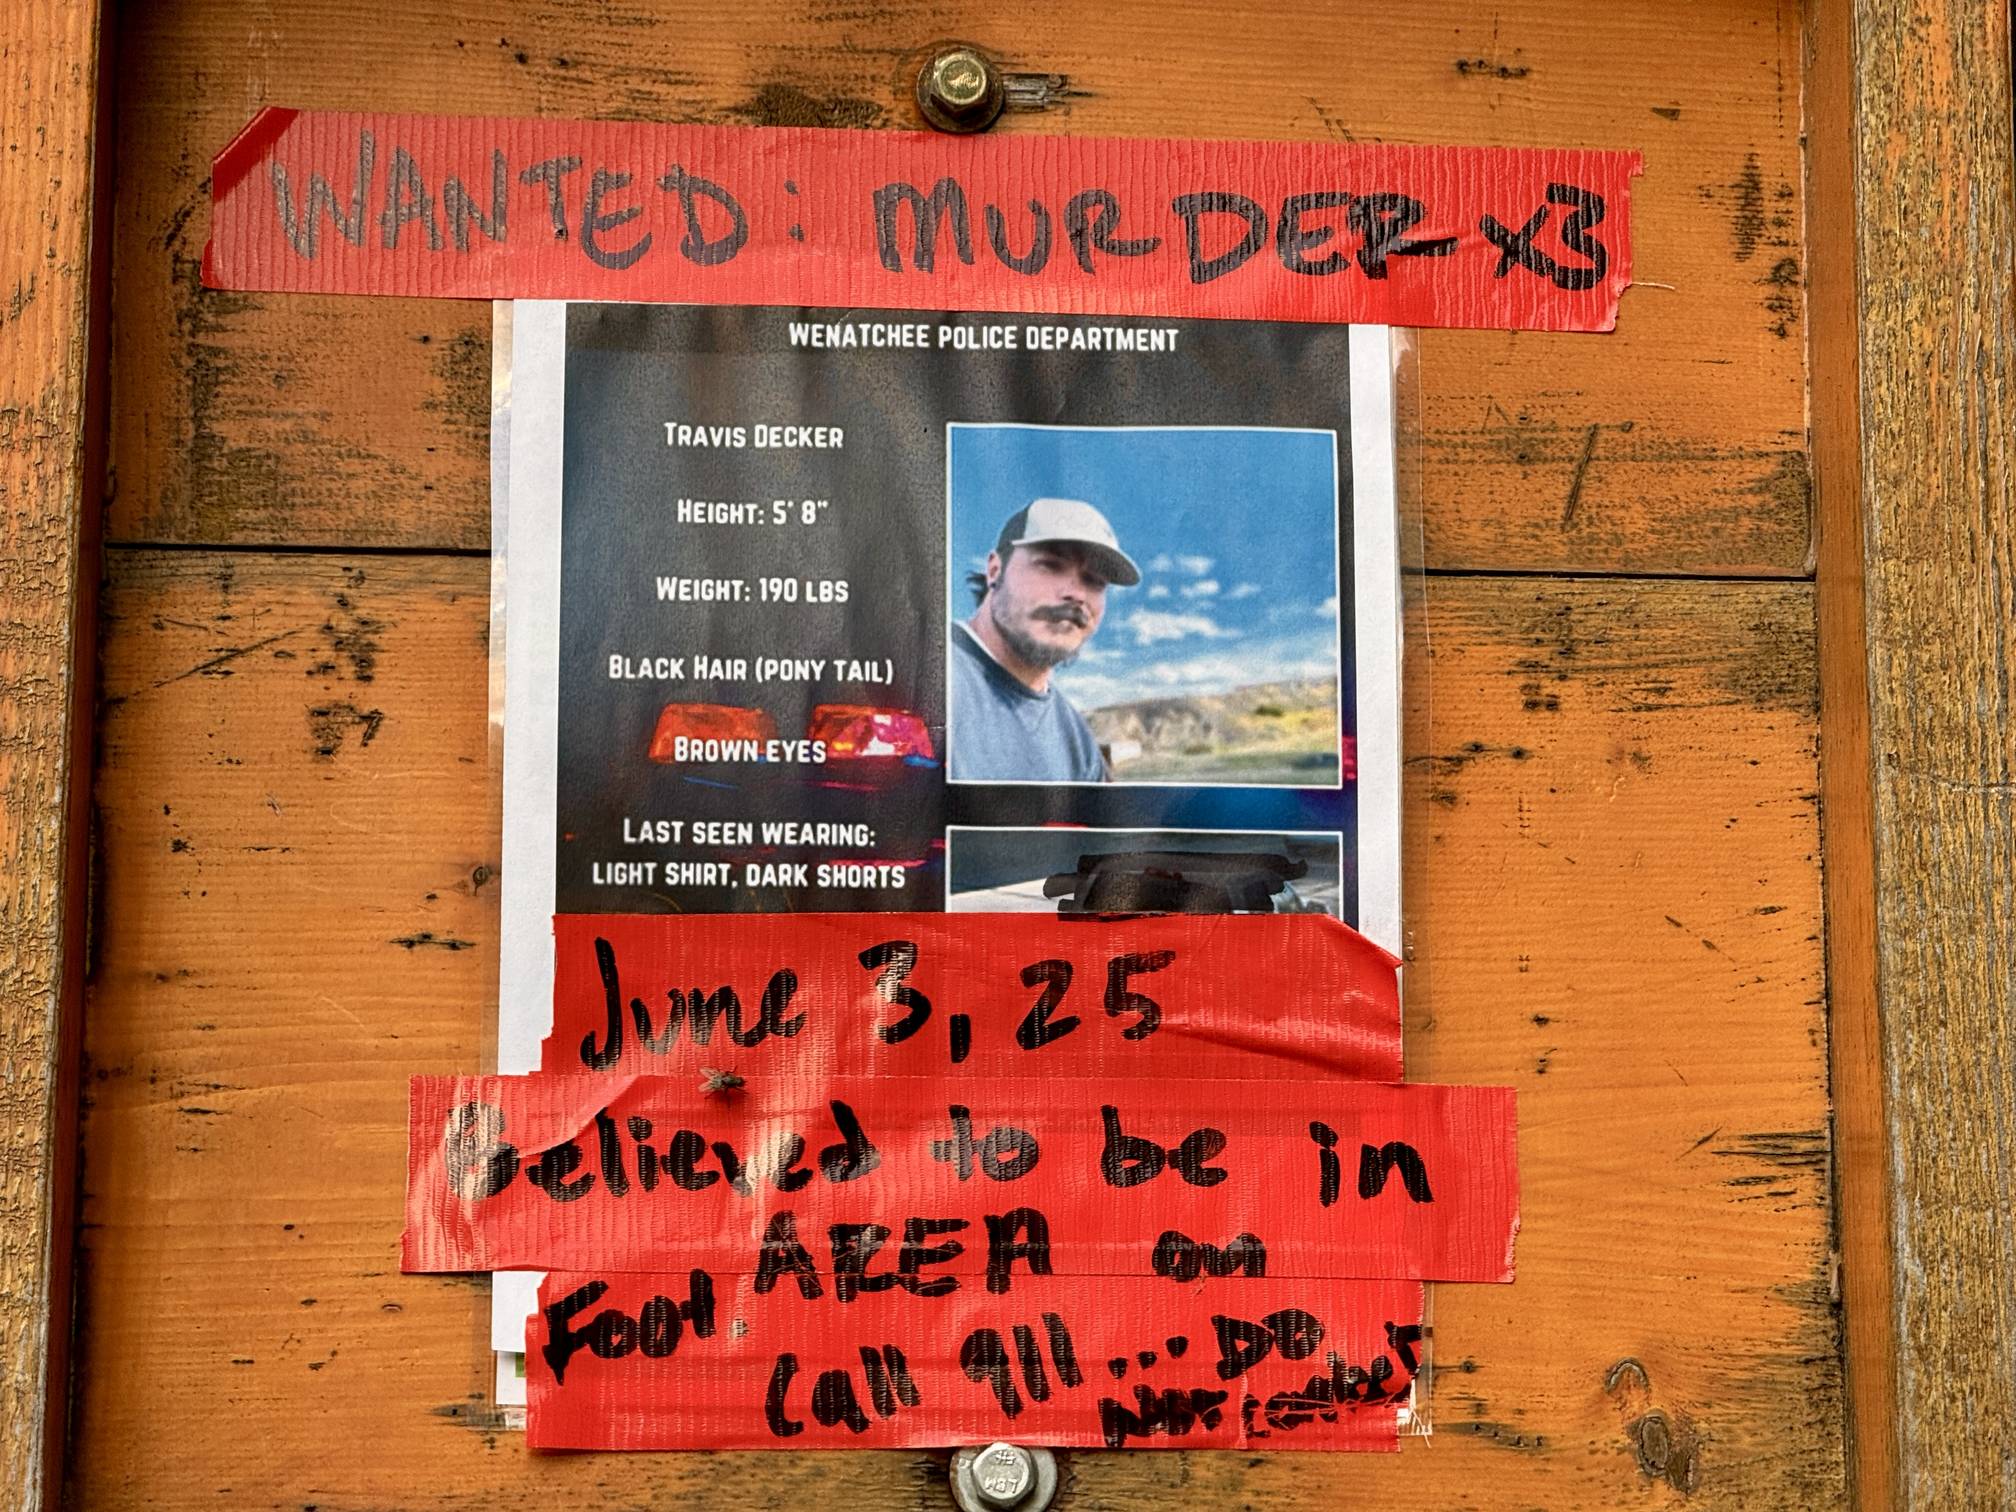 WANTED: MURDER x3
WENATCHEE POLICE DEPARTMENT
TRAVIS DECKER
HEIGHT: 5' 8"
WEIGHT: 190 LBS
BLACK HAIR (PONY TAIL)
BROWN EYES
LAST SEEN WEARING:
LIGHT SHIRT, DARK SHORTS
June 3, 25
Believed to be in
AREA on
Foot.
Call 911... DO
NOT contact